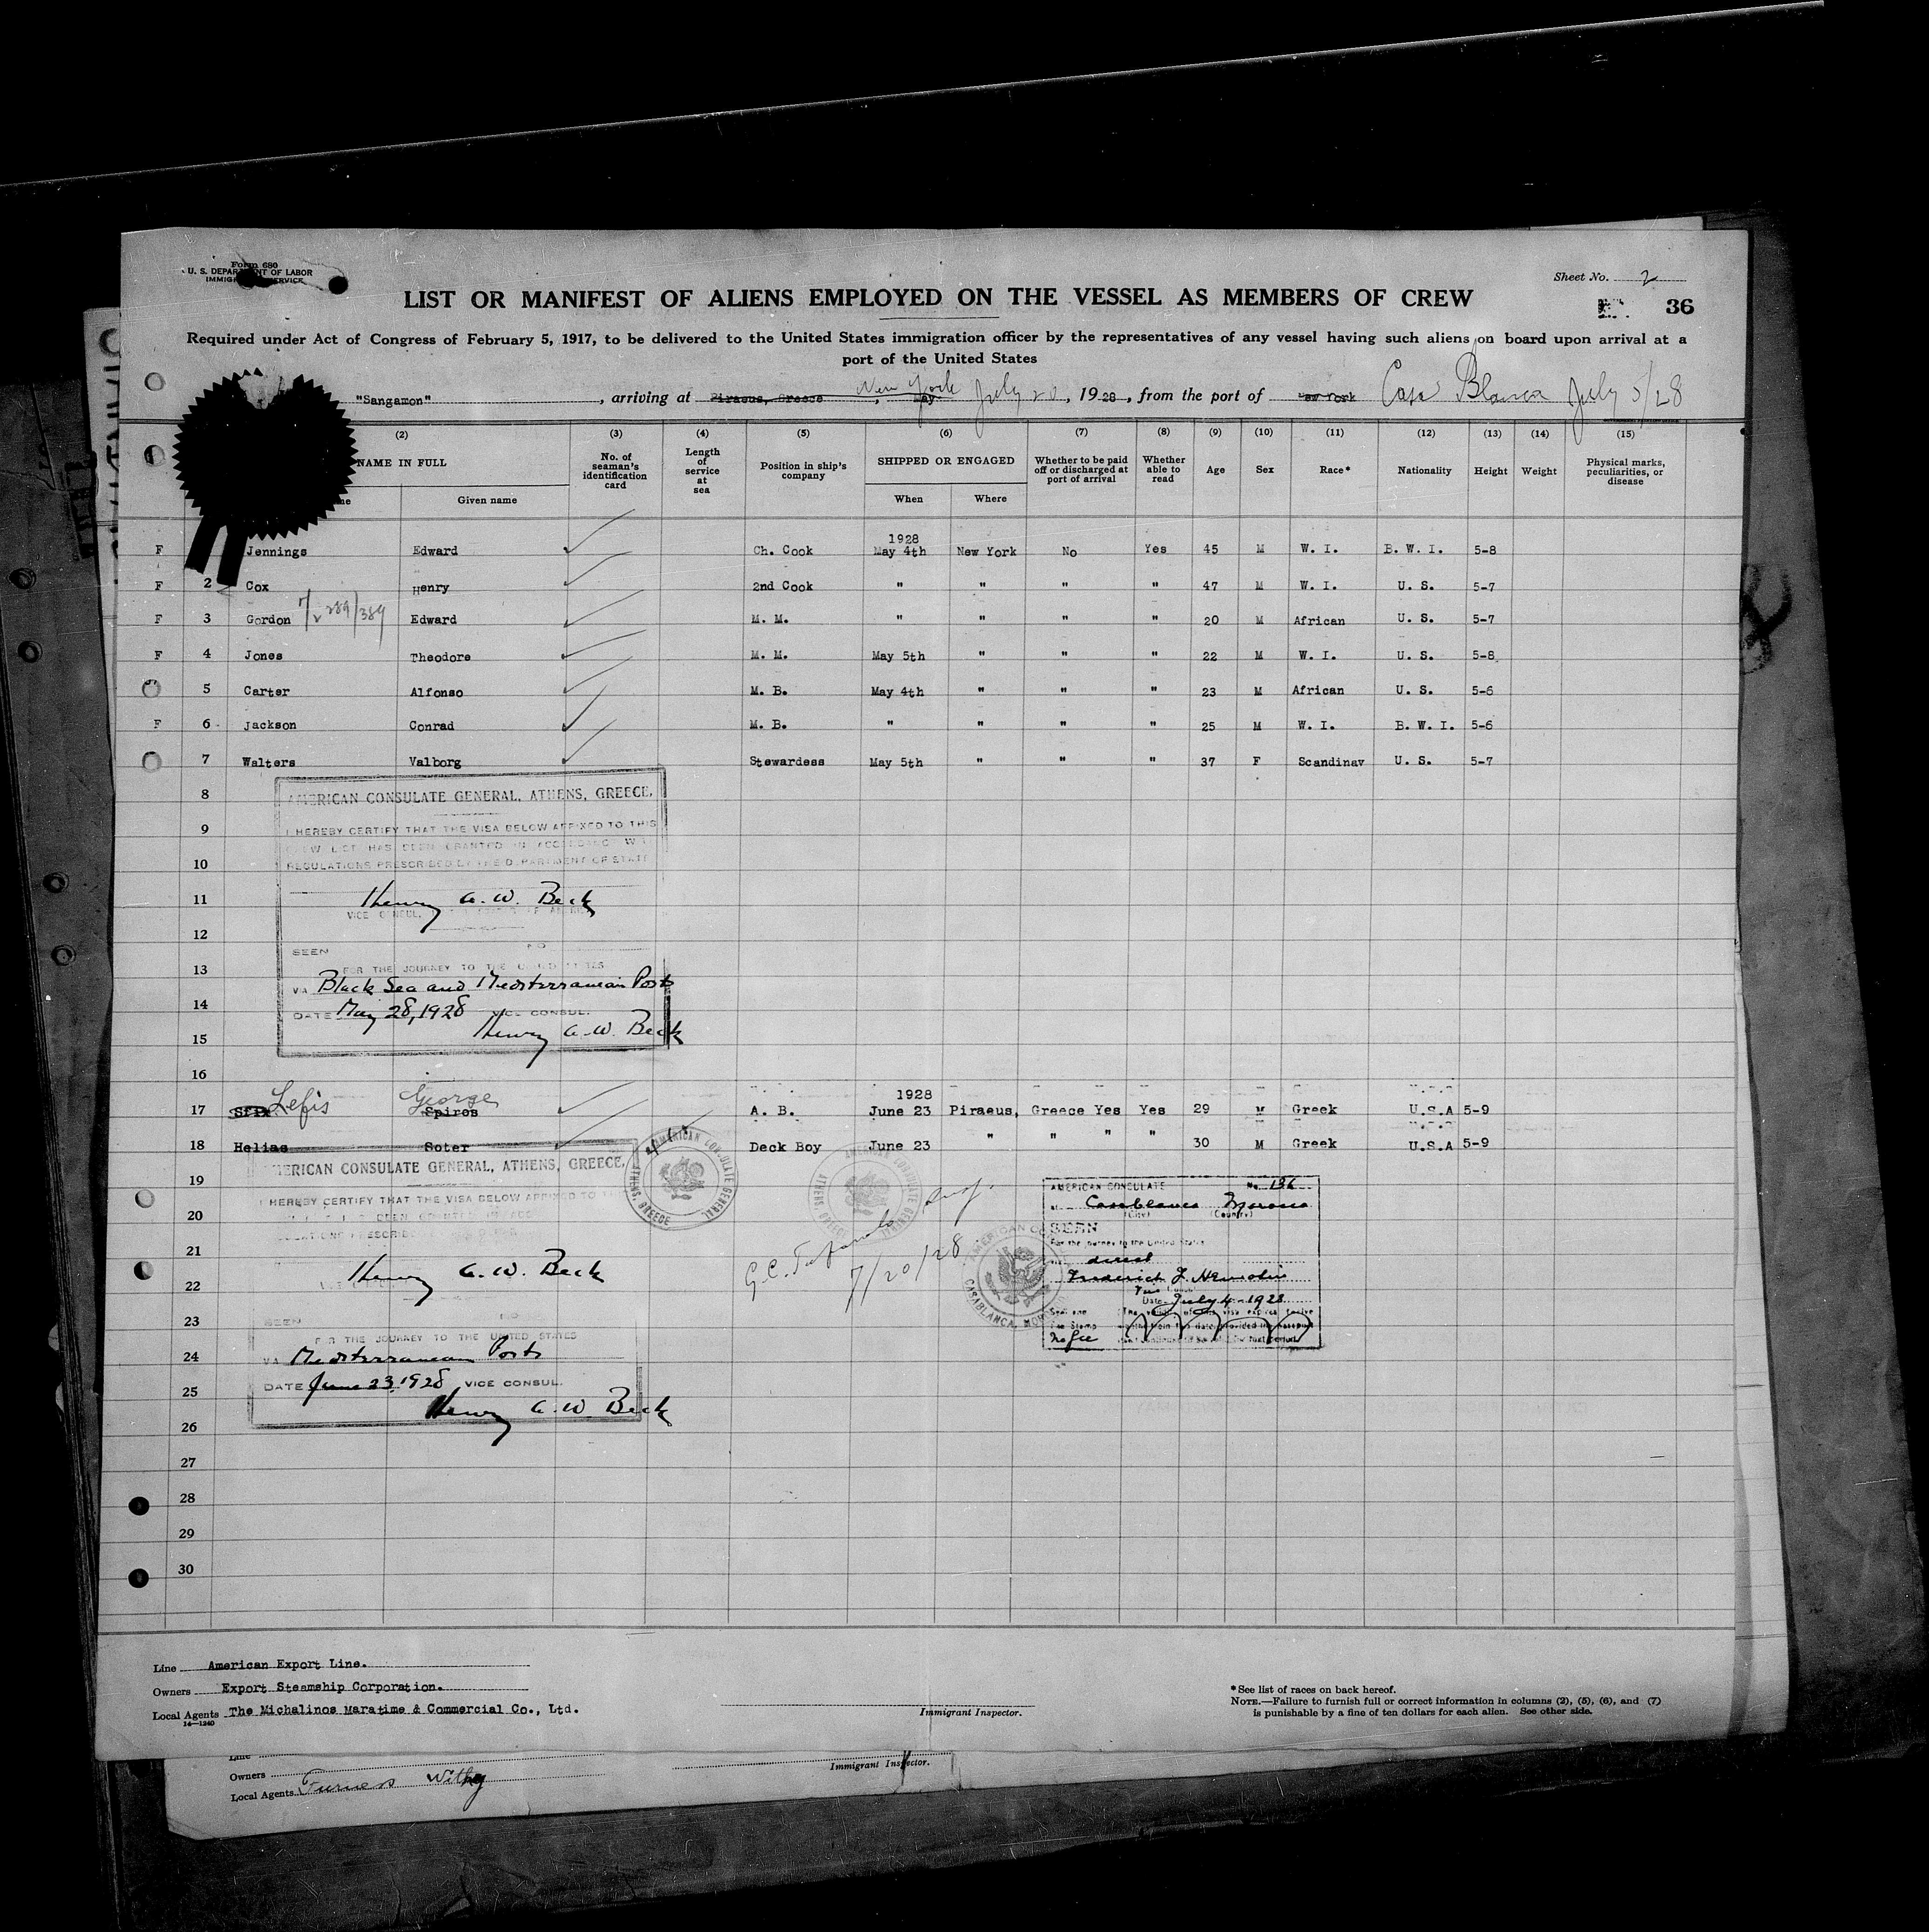 Form 680
U. S. DEPARTMENT OF LABOR
IMMIGRATION SERVICE
Sheet No. 2
36
LIST OR MANIFEST OF ALIENS EMPLOYED ON THE VESSEL AS MEMBERS OF CREW
Required under Act of Congress of February 5, 1917, to be delivered to the United States immigration officer by the representatives of any vessel having such aliens on board upon arrival at a
port of the United States
"Sangamon", arriving at Piraeus, Greece New York, May July 20, 1928, from the port of New York Casa Blanca July 5/28
(2) (3) (4) (5) (6) (7) (8) (9) (10) (11) (12) (13) (14) (15)
NAME IN FULL Given name No. of seaman's identification card Length of service at sea Position in ship's company SHIPPED OR ENGAGED When Where Whether to be paid off or discharged at port of arrival Whether able to read Age Sex Race* Nationality Height Weight Physical marks, peculiarities, or disease
1928
F Jennings Edward Ch. Cook May 4th New York No Yes 45 M W. I. B. W. I. 5-8
F 2 Cox Henry 2nd Cook " " " " 47 M W. I. U. S. 5-7
F 3 Gordon Edward M. M. " " " " 20 M African U. S. 5-7
F 4 Jones Theodore M. M. May 5th " " " 22 M W. I. U. S. 5-8
5 Carter Alfonso M. B. May 4th " " " 23 M African U. S. 5-6
F 6 Jackson Conrad M. B. " " " " 25 M W. I. B. W. I. 5-6
7 Walters Valborg Stewardess May 5th " " " 37 F Scandinav U. S. 5-7
8
AMERICAN CONSULATE GENERAL, ATHENS, GREECE.
9
I HEREBY CERTIFY THAT THE VISA BELOW AFFIXED TO THIS
CREW LIST HAS BEEN GRANTED IN ACCORDANCE WITH
10
REGULATIONS PRESCRIBED BY THE DEPARTMENT OF STATE
11
Henry A. W. Beck
VICE CONSUL
12
SEEN NO
13
FOR THE JOURNEY TO THE UNITED STATES
VIA Black Sea and Mediterranean Ports
14
DATE May 28, 1928 VICE CONSUL.
Henry A. W. Beck
15
16
1928
17 Lefis George Spiros A. B. June 23 Piraeus, Greece Yes Yes 29 M Greek U.S.A 5-9
18 Helias Soter Deck Boy June 23 " " " " 30 M Greek U.S.A 5-9
AMERICAN CONSULATE GENERAL, ATHENS, GREECE.
19
I HEREBY CERTIFY THAT THE VISA BELOW AFFIXED TO
20
21
Henry A. W. Beck
22
23
SEEN NO
FOR THE JOURNEY TO THE UNITED STATES
24
VIA Mediterranean Ports
DATE June 23, 1928 VICE CONSUL.
25
Henry A. W. Beck
26
27
28
29
30
AMERICAN CONSULATE GENERAL
ATHENS, GREECE
AMERICAN CONSULATE GENERAL
ATHENS, GREECE
7/20/28
AMERICAN CONSULATE No. 136
Casablanca Morocco
(City) (Country)
SEEN
For the journey to the United States
direct
Date July 4 - 1928
No fee
CASABLANCA, MOROCCO
Line American Export Line.
Owners Export Steamship Corporation.
Local Agents The Michalinos Maratime & Commercial Co., Ltd.
14—1240
Immigrant Inspector.
*See list of races on back hereof.
NOTE.—Failure to furnish full or correct information in columns (2), (5), (6), and (7)
is punishable by a fine of ten dollars for each alien. See other side.
Line
Owners
Local Agents Furness Withy
Immigrant Inspector.